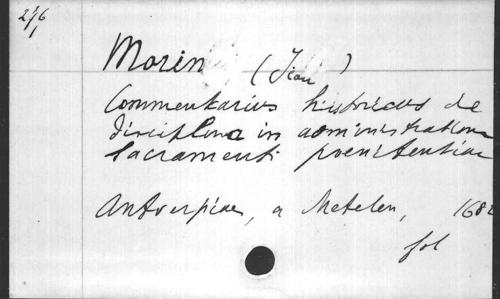 276
Morin (Jean)
Commentarius historicus de
disciplina in administratione
sacramenti poenitentiae
Antverpiae, a Metelen, 1682
fol